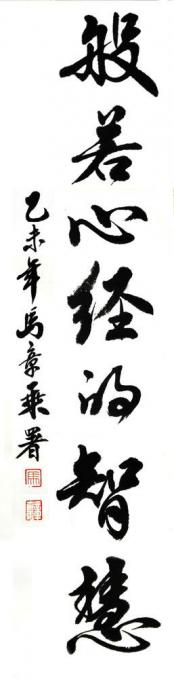 般若心经的智慧
乙未年马章乘署